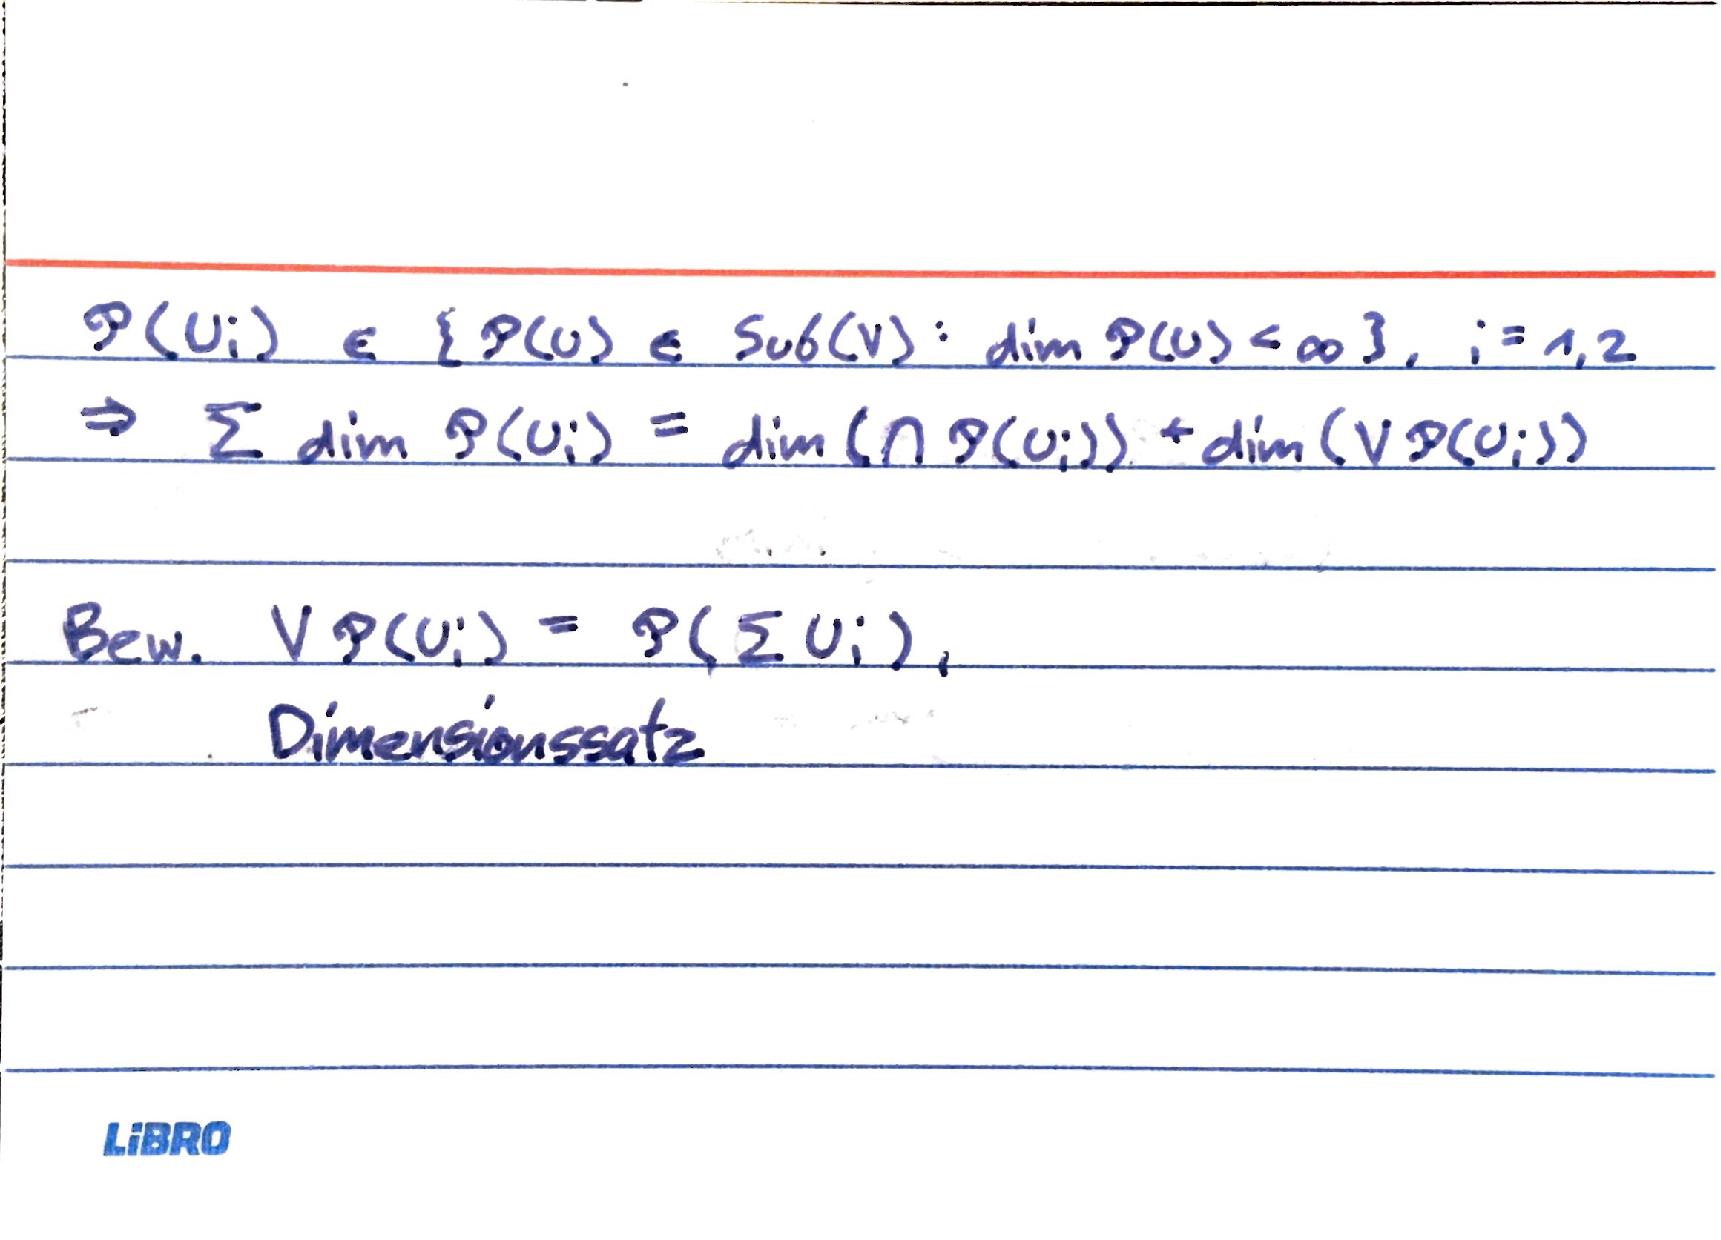 𝒫(Uᵢ) ∈ {𝒫(U) ∈ Sub(V) : dim 𝒫(U) < ∞}, i = 1,2
⇒ Σ dim 𝒫(Uᵢ) = dim(∩ 𝒫(Uᵢ)) + dim(∨ 𝒫(Uᵢ))
Bew. ∨ 𝒫(Uᵢ) = 𝒫(Σ Uᵢ),
Dimensionssatz
LiBRO